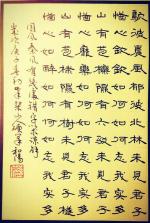 鴥彼晨風郁彼北林未見君子
憂心欽欽如何如何忘我實多
山有苞櫟隰有六駁未見君子
憂心靡樂如何如何忘我實多
山有苞棣隰有樹檖未見君子
憂心如醉如何如何忘我實多
國風秦風
歲次庚子